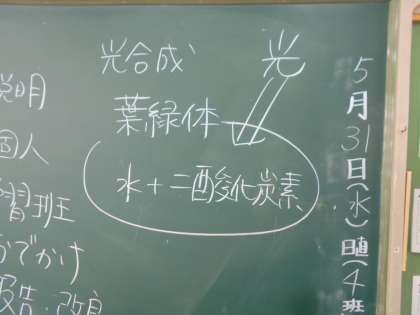 光合成
光
葉緑体
水+二酸化炭素
5月31日(水)日直(4班
説明
個人
学習班
おでかけ
報告・改良